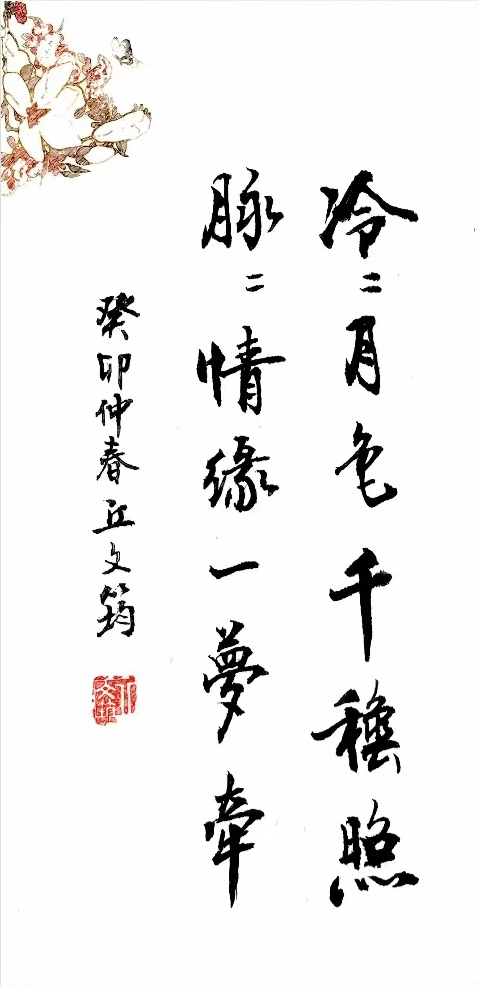 冷〻月色千穐照
脉〻情缘一夢牵
癸卯仲春丘文筠